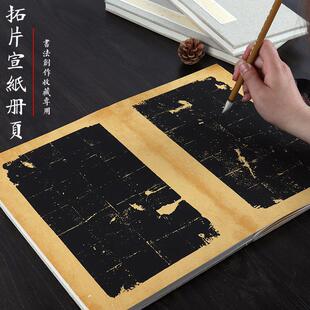 拓片宣紙册頁
書法創作收藏專用